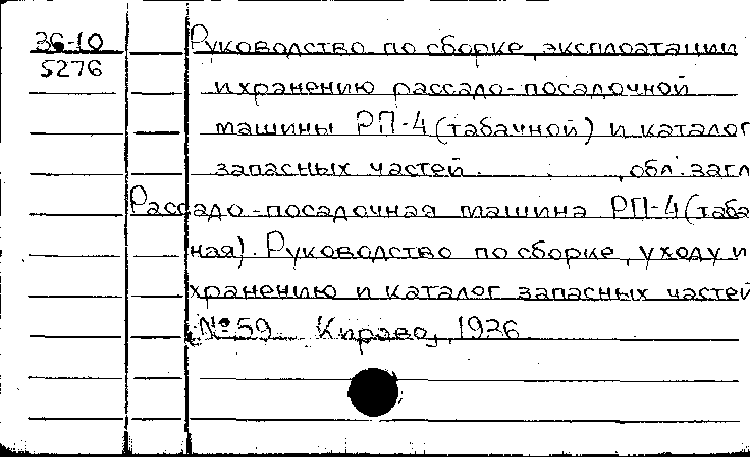 36-10
5276
Руководство по сборке, эксплоатации
и хранению рассадо-посадочной
машины РП-4 (табачной) и каталог
запасных частей. обл. загл
Рассадо-посадочная машина РП-4 (таба
ная). Руководство по сборке, уходу и
хранению и каталог запасных частей
№ 59